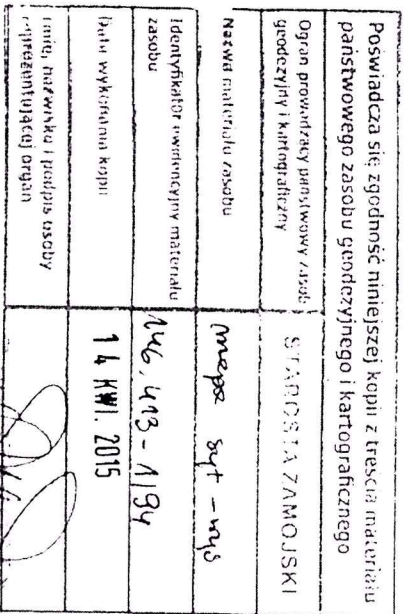 Poświadcza się zgodność niniejszej kopii z treścią materiału
państwowego zasobu geodezyjnego i kartograficznego
Organ prowadzący państwowy zasób
geodezyjny i kartograficzny
STAROSTA ZAMOJSKI
Nazwa materiału zasobu
mapa syt - wys
Identyfikator ewidencyjny materiału
zasobu
146.413-1194
Data wykonania kopii
14 KWI. 2015
Imię, nazwisko i podpis osoby
reprezentującej organ